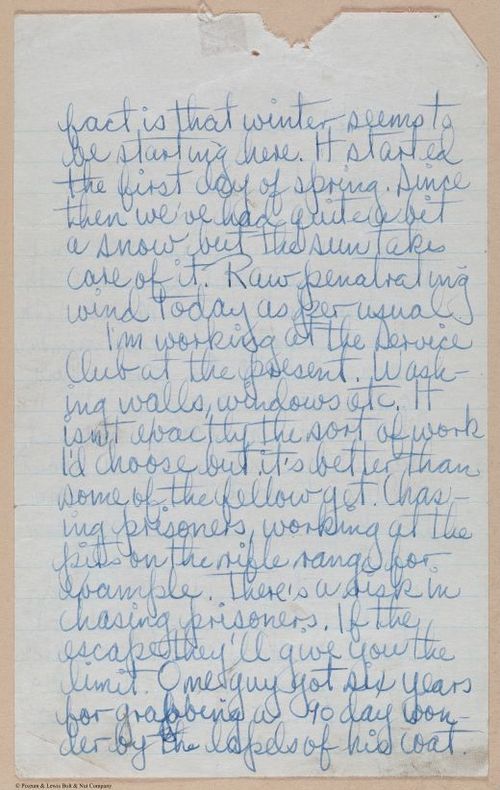 fact is that winter seems to
be starting here. It started
the first day of spring. Since
then we've had quite a bit
a snow but the sun takes
care of it. Raw penatrating
wind today as per usual.
I'm working at the Service
Club at the present. Wash-
ing walls, windows etc. It
isn't exactly the sort of work
I'd choose but it's better than
some of the fellow get. Chas-
ing prisoners, working at the
pits on the rifle range for
example. There's a risk in
chasing prisoners. If the
escape they'll give you the
limit. One guy got six years
for grabbing a 90 day won-
der by the lapels of his coat.
© Pozum & Lewis Bolt & Nut Company